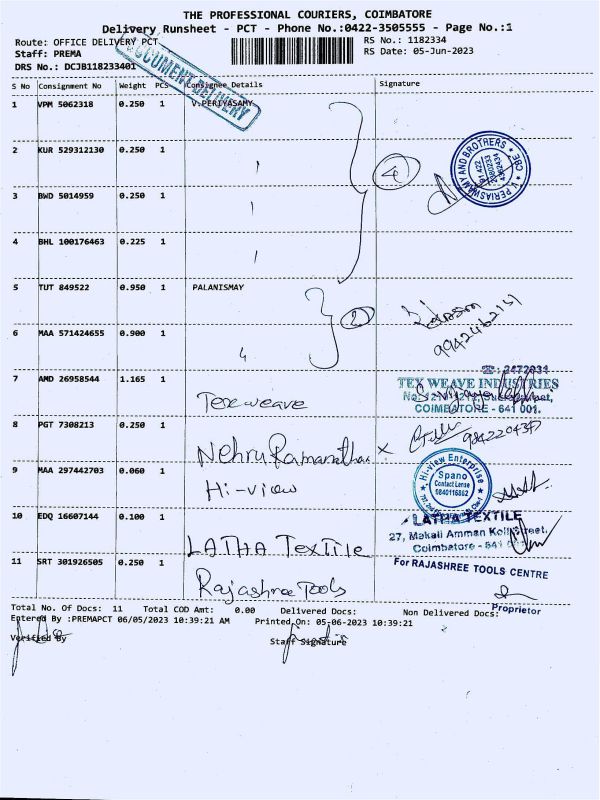 THE PROFESSIONAL COURIERS, COIMBATORE
Delivery Runsheet - PCT - Phone No.:0422-3505555 - Page No.:1
Route: OFFICE DELIVERY PCT
RS No.: 1182334
Staff: PREMA
RS Date: 05-Jun-2023
DRS No.: DCJB118233401
DOCUMENT DELIVERY
S No Consignment No Weight PCS Consignee Details Signature
1 VPM 5062318 0.250 1 V.PERIYASAMY
2 KUR 529312130 0.250 1
4
V. PERIASWAMY AND BROTHERS CBE
3 BWD 5014959 0.250 1
4 BHL 100176463 0.225 1
5 TUT 849522 0.950 1 PALANISMAY
2
6 MAA 571424655 0.900 1
7 AMD 26958544 1.165 1 Tex weave
2472034
TEX WEAVE INDUSTRIES
COIMBATORE - 641 001.
8 PGT 7308213 0.250 1 Nehru Ramanathan x
9 MAA 297442703 0.060 1 Hi-view
Hi-view Enterprise
Spano
Contact Lense
9840116862
10 EDQ 16607144 0.100 1 LATHA TEXTILE
LATHA TEXTILE
27, Makali Amman Koil Street,
Coimbatore - 641
11 SRT 301926505 0.250 1 Rajashree Tools
For RAJASHREE TOOLS CENTRE
Proprietor
Total No. Of Docs: 11 Total COD Amt: 0.00 Delivered Docs: Non Delivered Docs:
Entered By :PREMAPCT 06/05/2023 10:39:21 AM Printed On: 05-06-2023 10:39:21
Verified By Staff Signature